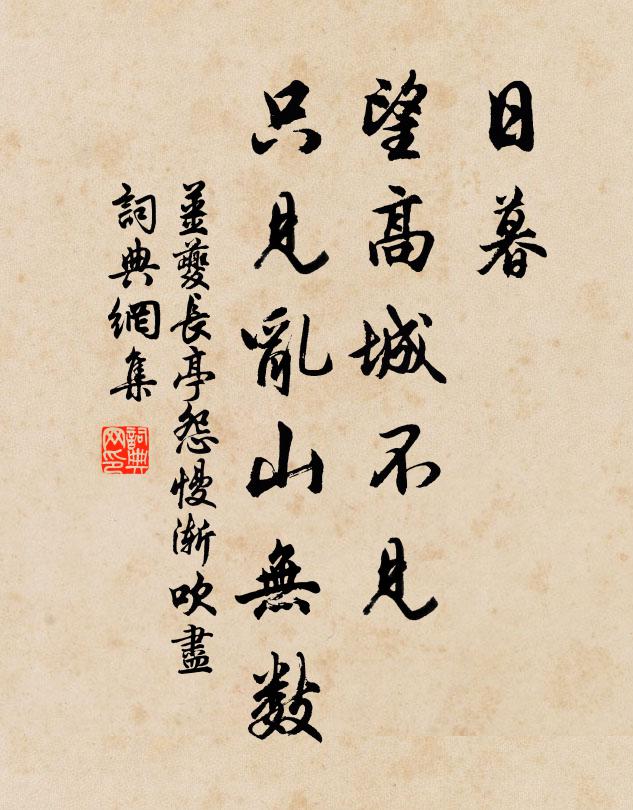 日暮
望高城不見
只見亂山無數
姜夔長亭怨慢漸吹盡
詞典網集
詞典網印